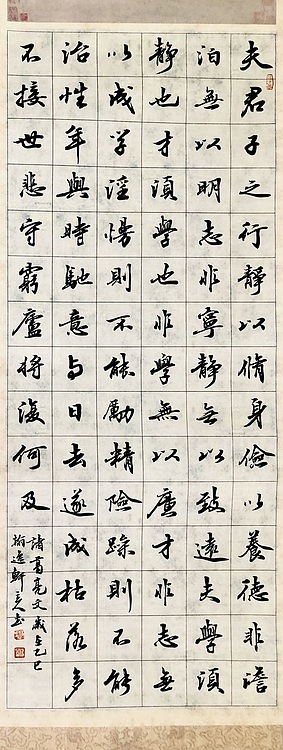 夫君子之行靜以脩身儉以養德非澹
泊無以明志非寧靜无以致遠夫學須
靜也才須學也非學無以廣才非志無
以成学淫慢則不能勵精險躁則不能
治性年與時馳意与日去遂成枯落多
不接世悲守窮廬將復何及
諸葛亮文歲在乙巳
逸軒主人书